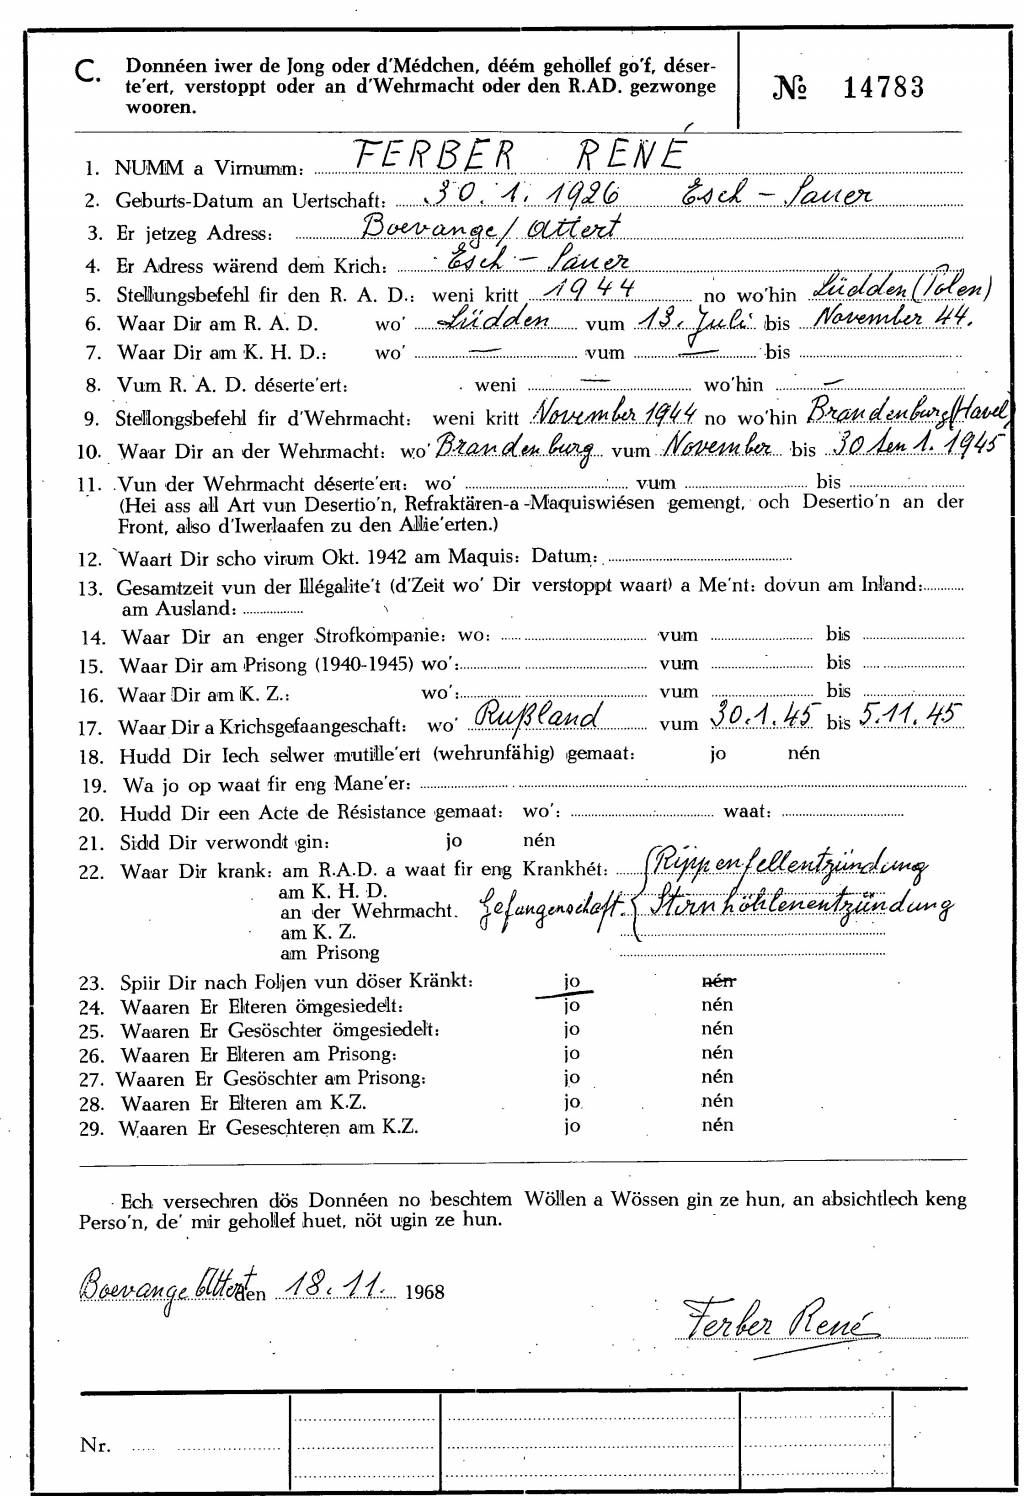 C. Donnéen iwer de Jong oder d'Médchen, déém gehollef go'f, déser-
te'ert, verstoppt oder an d'Wehrmacht oder den R.AD. gezwonge
wooren.
№ 14783
1. NUMM a Virnumm: FERBER RENÉ
2. Geburts-Datum an Uertschaft: 30. 1. 1926 Esch - Sauer
3. Er jetzeg Adress: Boevange/Attert
4. Er Adress wärend dem Krich: Esch - Sauer
5. Stellungsbefehl fir den R. A. D.: weni kritt 1944 no wo'hin Lüdden (Polen)
6. Waar Dir am R. A. D. wo' Lüdden vum 13. Juli bis November 44.
7. Waar Dir am K. H. D.: wo' — vum — bis
8. Vum R. A. D. déserte'ert: weni — wo'hin —
9. Stellongsbefehl fir d'Wehrmacht: weni kritt November 1944 no wo'hin Brandenburg (Havel)
10. Waar Dir an der Wehrmacht: wo' Brandenburg vum November bis 30ten 1. 1945
11. Vun der Wehrmacht déserte'ert: wo' vum bis
(Hei ass all Art vun Desertio'n, Refraktären-a-Maquiswiésen gemengt, och Desertio'n an der
Front, also d'Iwerlaafen zu den Allie'erten.)
12. Waart Dir scho virum Okt. 1942 am Maquis: Datum:
13. Gesamtzeit vun der Illégalite't (d'Zeit wo' Dir verstoppt waart) a Me'nt: dovun am Inland:
am Ausland:
14. Waar Dir an enger Strofkompanie: wo: vum bis
15. Waar Dir am Prisong (1940-1945) wo': vum bis
16. Waar Dir am K. Z.: wo': vum bis
17. Waar Dir a Krichsgefaangeschaft: wo' Rußland vum 30.1.45 bis 5.11.45
18. Hudd Dir Iech selwer mutille'ert (wehrunfähig) gemaat: jo nén
19. Wa jo op waat fir eng Mane'er:
20. Hudd Dir een Acte de Résistance gemaat: wo': waat:
21. Sidd Dir verwondt gin: jo nén
22. Waar Dir krank: am R.A.D. a waat fir eng Krankhét: Rippenfellentzündung
am K. H. D.
an der Wehrmacht. Gefangenschaft. Stirnhöhlenentzündung
am K. Z.
am Prisong
23. Spiir Dir nach Foljen vun döser Kränkt: jo nén
24. Waaren Er Elteren ömgesiedelt: jo nén
25. Waaren Er Gesöschter ömgesiedelt: jo nén
26. Waaren Er Elteren am Prisong: jo nén
27. Waaren Er Gesöschter am Prisong: jo nén
28. Waaren Er Elteren am K.Z. jo nén
29. Waaren Er Geseschteren am K.Z. jo nén
Ech versechren dös Donnéen no beschtem Wöllen a Wössen gin ze hun, an absichtlech keng
Perso'n, de' mir gehollef huet, nöt ugin ze hun.
Boevange Attert den 18. 11. 1968
Ferber René
Nr.